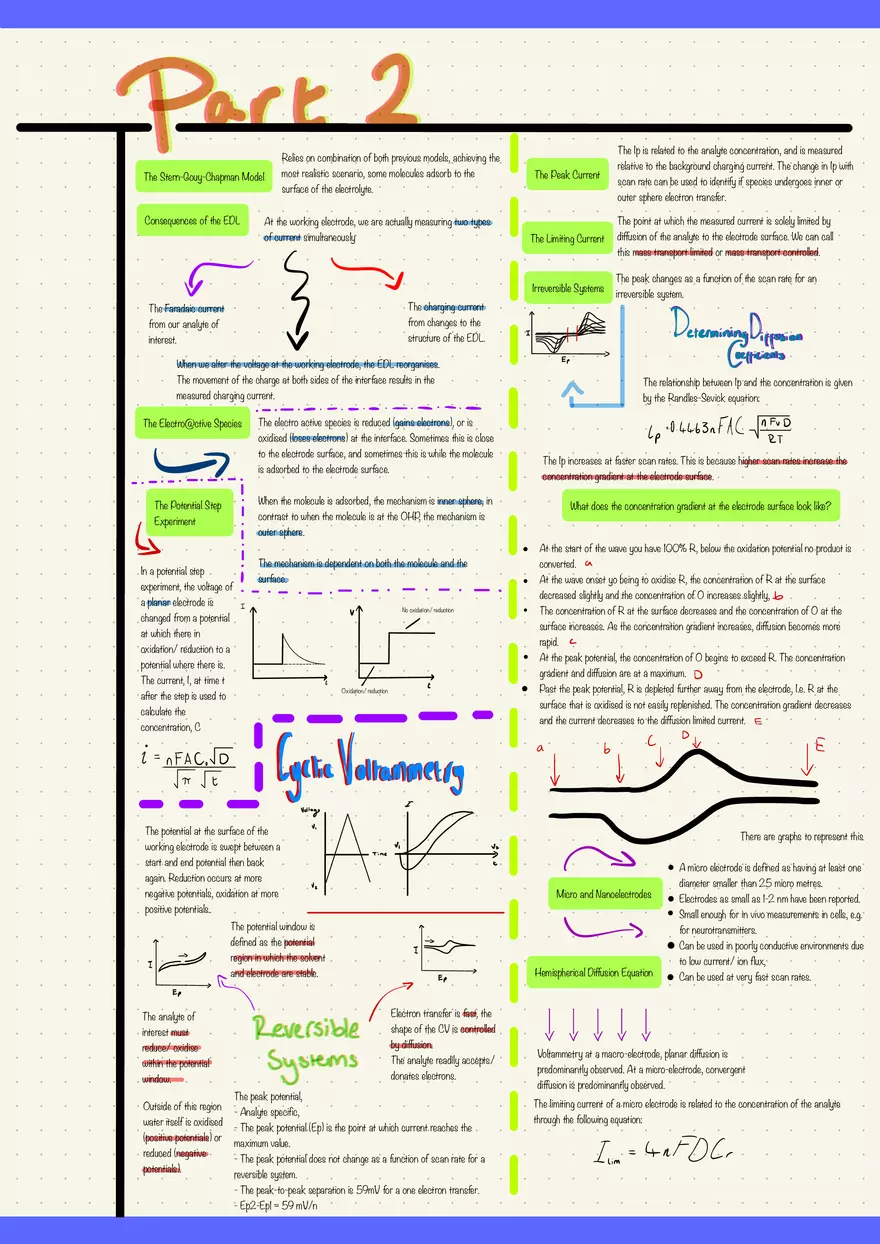 Part 2
The Stern-Gouy-Chapman Model
Relies on combination of both previous models, achieving the
most realistic scenario, some molecules adsorb to the
surface of the electrolyte.
Consequences of the EDL
At the working electrode, we are actually measuring two types
of current simultaneously
The Faradaic current
from our analyte of
interest.
The charging current
from changes to the
structure of the EDL.
When we alter the voltage at the working electrode, the EDL reorganises.
The movement of the charge at both sides of the interface results in the
measured charging current.
The Electro@ctive Species
The electro active species is reduced (gains electrons), or is
oxidised (loses electrons) at the interface. Sometimes this is close
to the electrode surface, and sometimes this is while the molecule
is adsorbed to the electrode surface.
When the molecule is adsorbed, the mechanism is inner sphere, in
contrast to when the molecule is at the OHP, the mechanism is
outer sphere.
The mechanism is dependent on both the molecule and the
surface.
The Potential Step
Experiment
In a potential step
experiment, the voltage of
a planar electrode is
changed from a potential
at which there in
oxidation/ reduction to a
potential where there is.
The current, I, at time t
after the step is used to
calculate the
concentration, C
i = nFAC√D
√π √t
I
t
V
No oxidation/ reduction
Oxidation/ reduction
t
Cyclic Voltammetry
The potential at the surface of the
working electrode is swept between a
start and end potential then back
again. Reduction occurs at more
negative potentials, oxidation at more
positive potentials.
Voltage
V₁
Time
V₂
I
V₁
V₂
The potential window is
defined as the potential
region in which the solvent
and electrode are stable.
I
Ep
I
Ep
The analyte of
interest must
reduce/ oxidise
within the potential
window.
Outside of this region
water itself is oxidised
(positive potentials) or
reduced (negative
potentials).
Reversible
Systems
Electron transfer is fast, the
shape of the CV is controlled
by diffusion.
The analyte readily accepts/
donates electrons.
The peak potential,
- Analyte specific,
- The peak potential (Ep) is the point at which current reaches the
maximum value.
- The peak potential does not change as a function of scan rate for a
reversible system.
- The peak-to-peak separation is 59mV for a one electron transfer.
- Ep2-Ep1 = 59 mV/n
The Peak Current
The Ip is related to the analyte concentration, and is measured
relative to the background charging current. The change in Ip with
scan rate can be used to identify if species undergoes inner or
outer sphere electron transfer.
The Limiting Current
The point at which the measured current is solely limited by
diffusion of the analyte to the electrode surface. We can call
this mass transport limited or mass transport controlled.
Irreversible Systems
The peak changes as a function of the scan rate for an
irreversible system.
I
Ep
Determining Diffusion
Coefficients
The relationship between Ip and the concentration is given
by the Randles-Sevick equation:
ip = 0.4463nFAC √nFvD
RT
The Ip increases at faster scan rates. This is because higher scan rates increase the
concentration gradient at the electrode surface.
What does the concentration gradient at the electrode surface look like?
• At the start of the wave you have 100% R, below the oxidation potential no product is
converted. a
• At the wave onset yo being to oxidise R, the concentration of R at the surface
decreased slightly and the concentration of O increases slightly, b
• The concentration of R at the surface decreases and the concentration of O at the
surface increases. As the concentration gradient increases, diffusion becomes more
rapid. c
• At the peak potential, the concentration of O begins to exceed R. The concentration
gradient and diffusion are at a maximum. D
• Past the peak potential, R is depleted further away from the electrode, I.e. R at the
surface that is oxidised is not easily replenished. The concentration gradient decreases
and the current decreases to the diffusion limited current. E
a
b
C
D
E
There are graphs to represent this.
Micro and Nanoelectrodes
• A micro electrode is defined as having at least one
diameter smaller than 25 micro metres.
• Electrodes as small as 1-2 nm have been reported.
• Small enough for In vivo measurements in cells, e.g.
for neurotransmitters.
• Can be used in poorly conductive environments due
to low current/ ion flux,
• Can be used at very fast scan rates.
Hemispherical Diffusion Equation
Voltammetry at a macro-electrode, planar diffusion is
predominantly observed. At a micro-electrode, convergent
diffusion is predominantly observed.
The limiting current of a micro electrode is related to the concentration of the analyte
through the following equation:
I lim = 4nFDCr